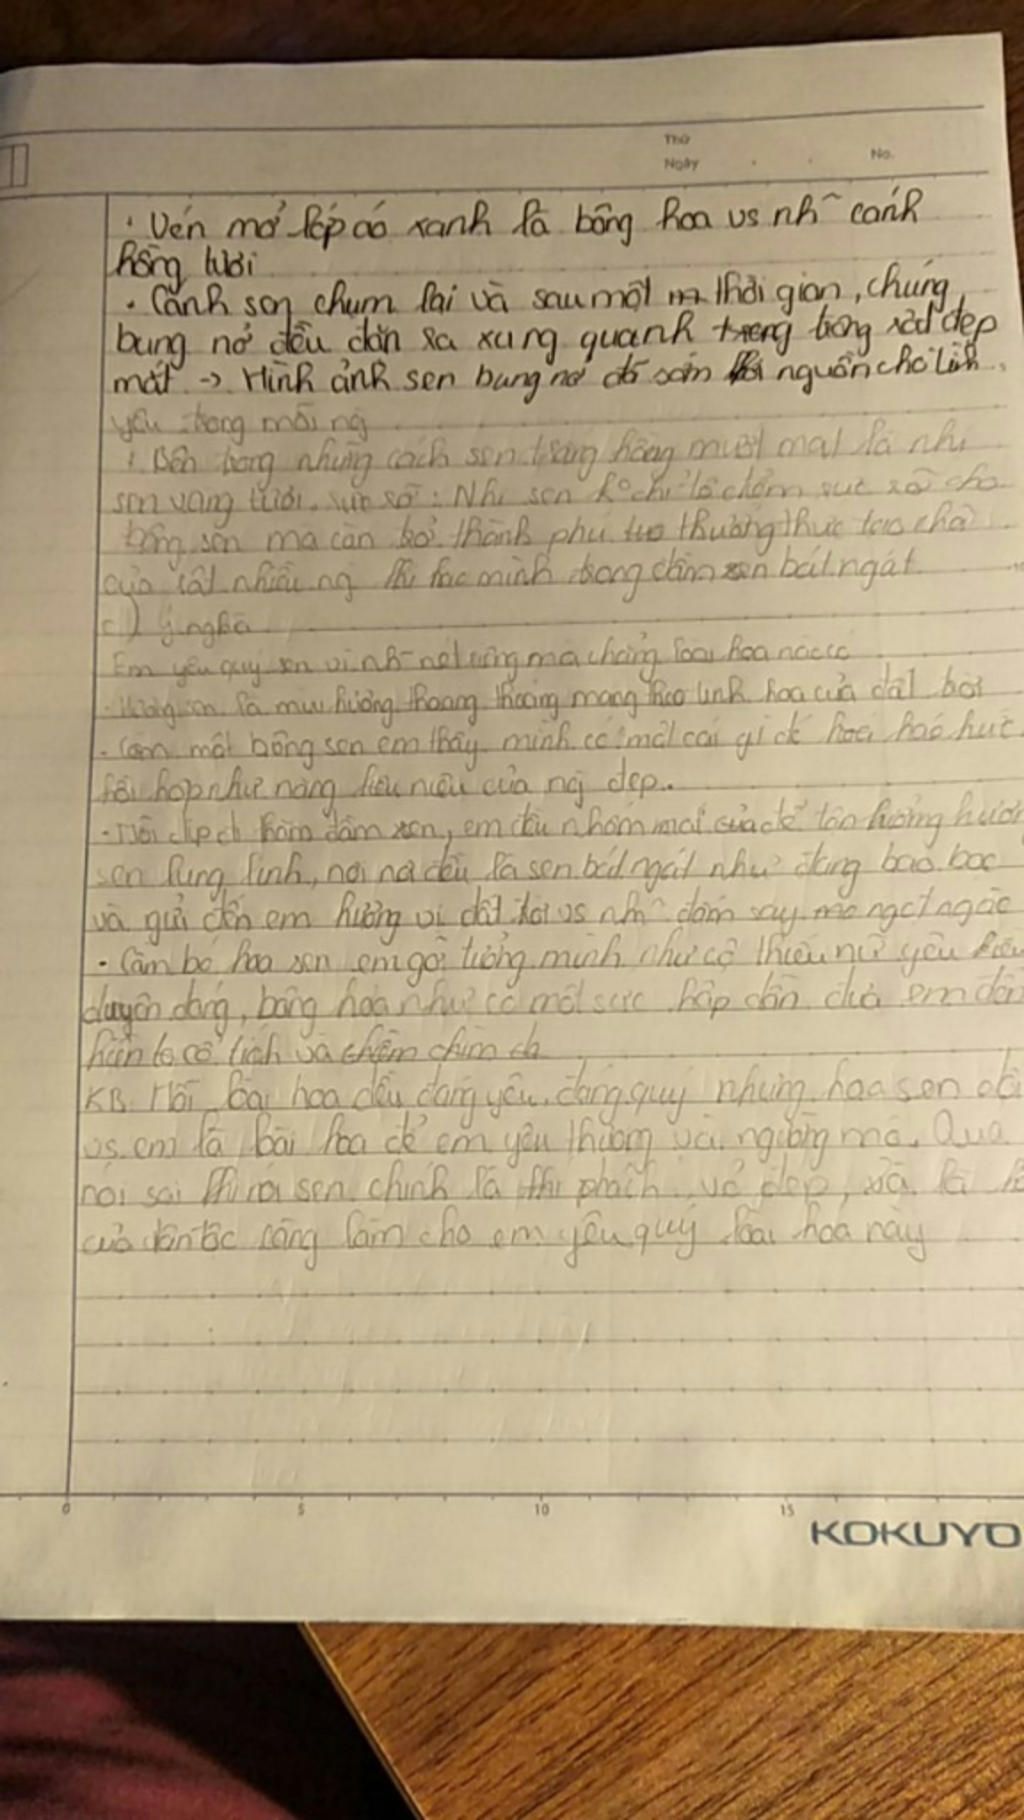 Thứ
Ngày . . No.
· Vén mở lớp áo xanh là bông hoa vs nh~ cánh
hồng tươi
· Cánh sen chụm lại và sau một thời gian, chúng
bung nở đều đặn ra xung quanh trông rất đẹp
mắt -> Hình ảnh sen bung nở đó nguồn cho tình
yêu trong mỗi ng
: Bên trong những cánh sen trắng hồng mượt mà là nhị
sen vàng tươi, rực rỡ: Nhị sen k° chỉ tô điểm rực rỡ cho
bông sen mà còn trở thành phụ thưởng thức
của rất nhiều ng mình trong đầm sen bát ngát
c) Ý nghĩa
Em yêu quý sen vì nh~ nét riêng mà chẳng loài hoa nào có
- Hương sen là mùi hương thoang thoảng mang theo tinh hoa của đất trời
- Cầm một bông sen em thấy mình có một cái gì đó háo hức
hồi hộp như nàng của ng đẹp.
- Mỗi dịp đi thăm đầm sen, em đều nhắm mắt để tận hưởng hươn
sen lung linh, nơi nơi đều là sen bát ngát như đang bao bọc
và gửi đến em hương vị đất trời vs nh~ đắm say, mơ ngọt ngào
- Cầm bó hoa sen em gợi tưởng mình như cô thiếu nữ yêu kiều
duyên dáng, bông hoa như có một sức hấp dẫn đưa em đến
cổ tích và
KB: Mỗi loài hoa đều đáng yêu, đáng quý nhưng hoa sen đối
vs em là loài hoa để em yêu thương và ngưỡng mộ. Quả
nói sai khi nói sen chính là khí phách, vẻ đẹp, là
của dân tộc càng làm cho em yêu quý loài hoa này
0 5 10 15
KOKUYO